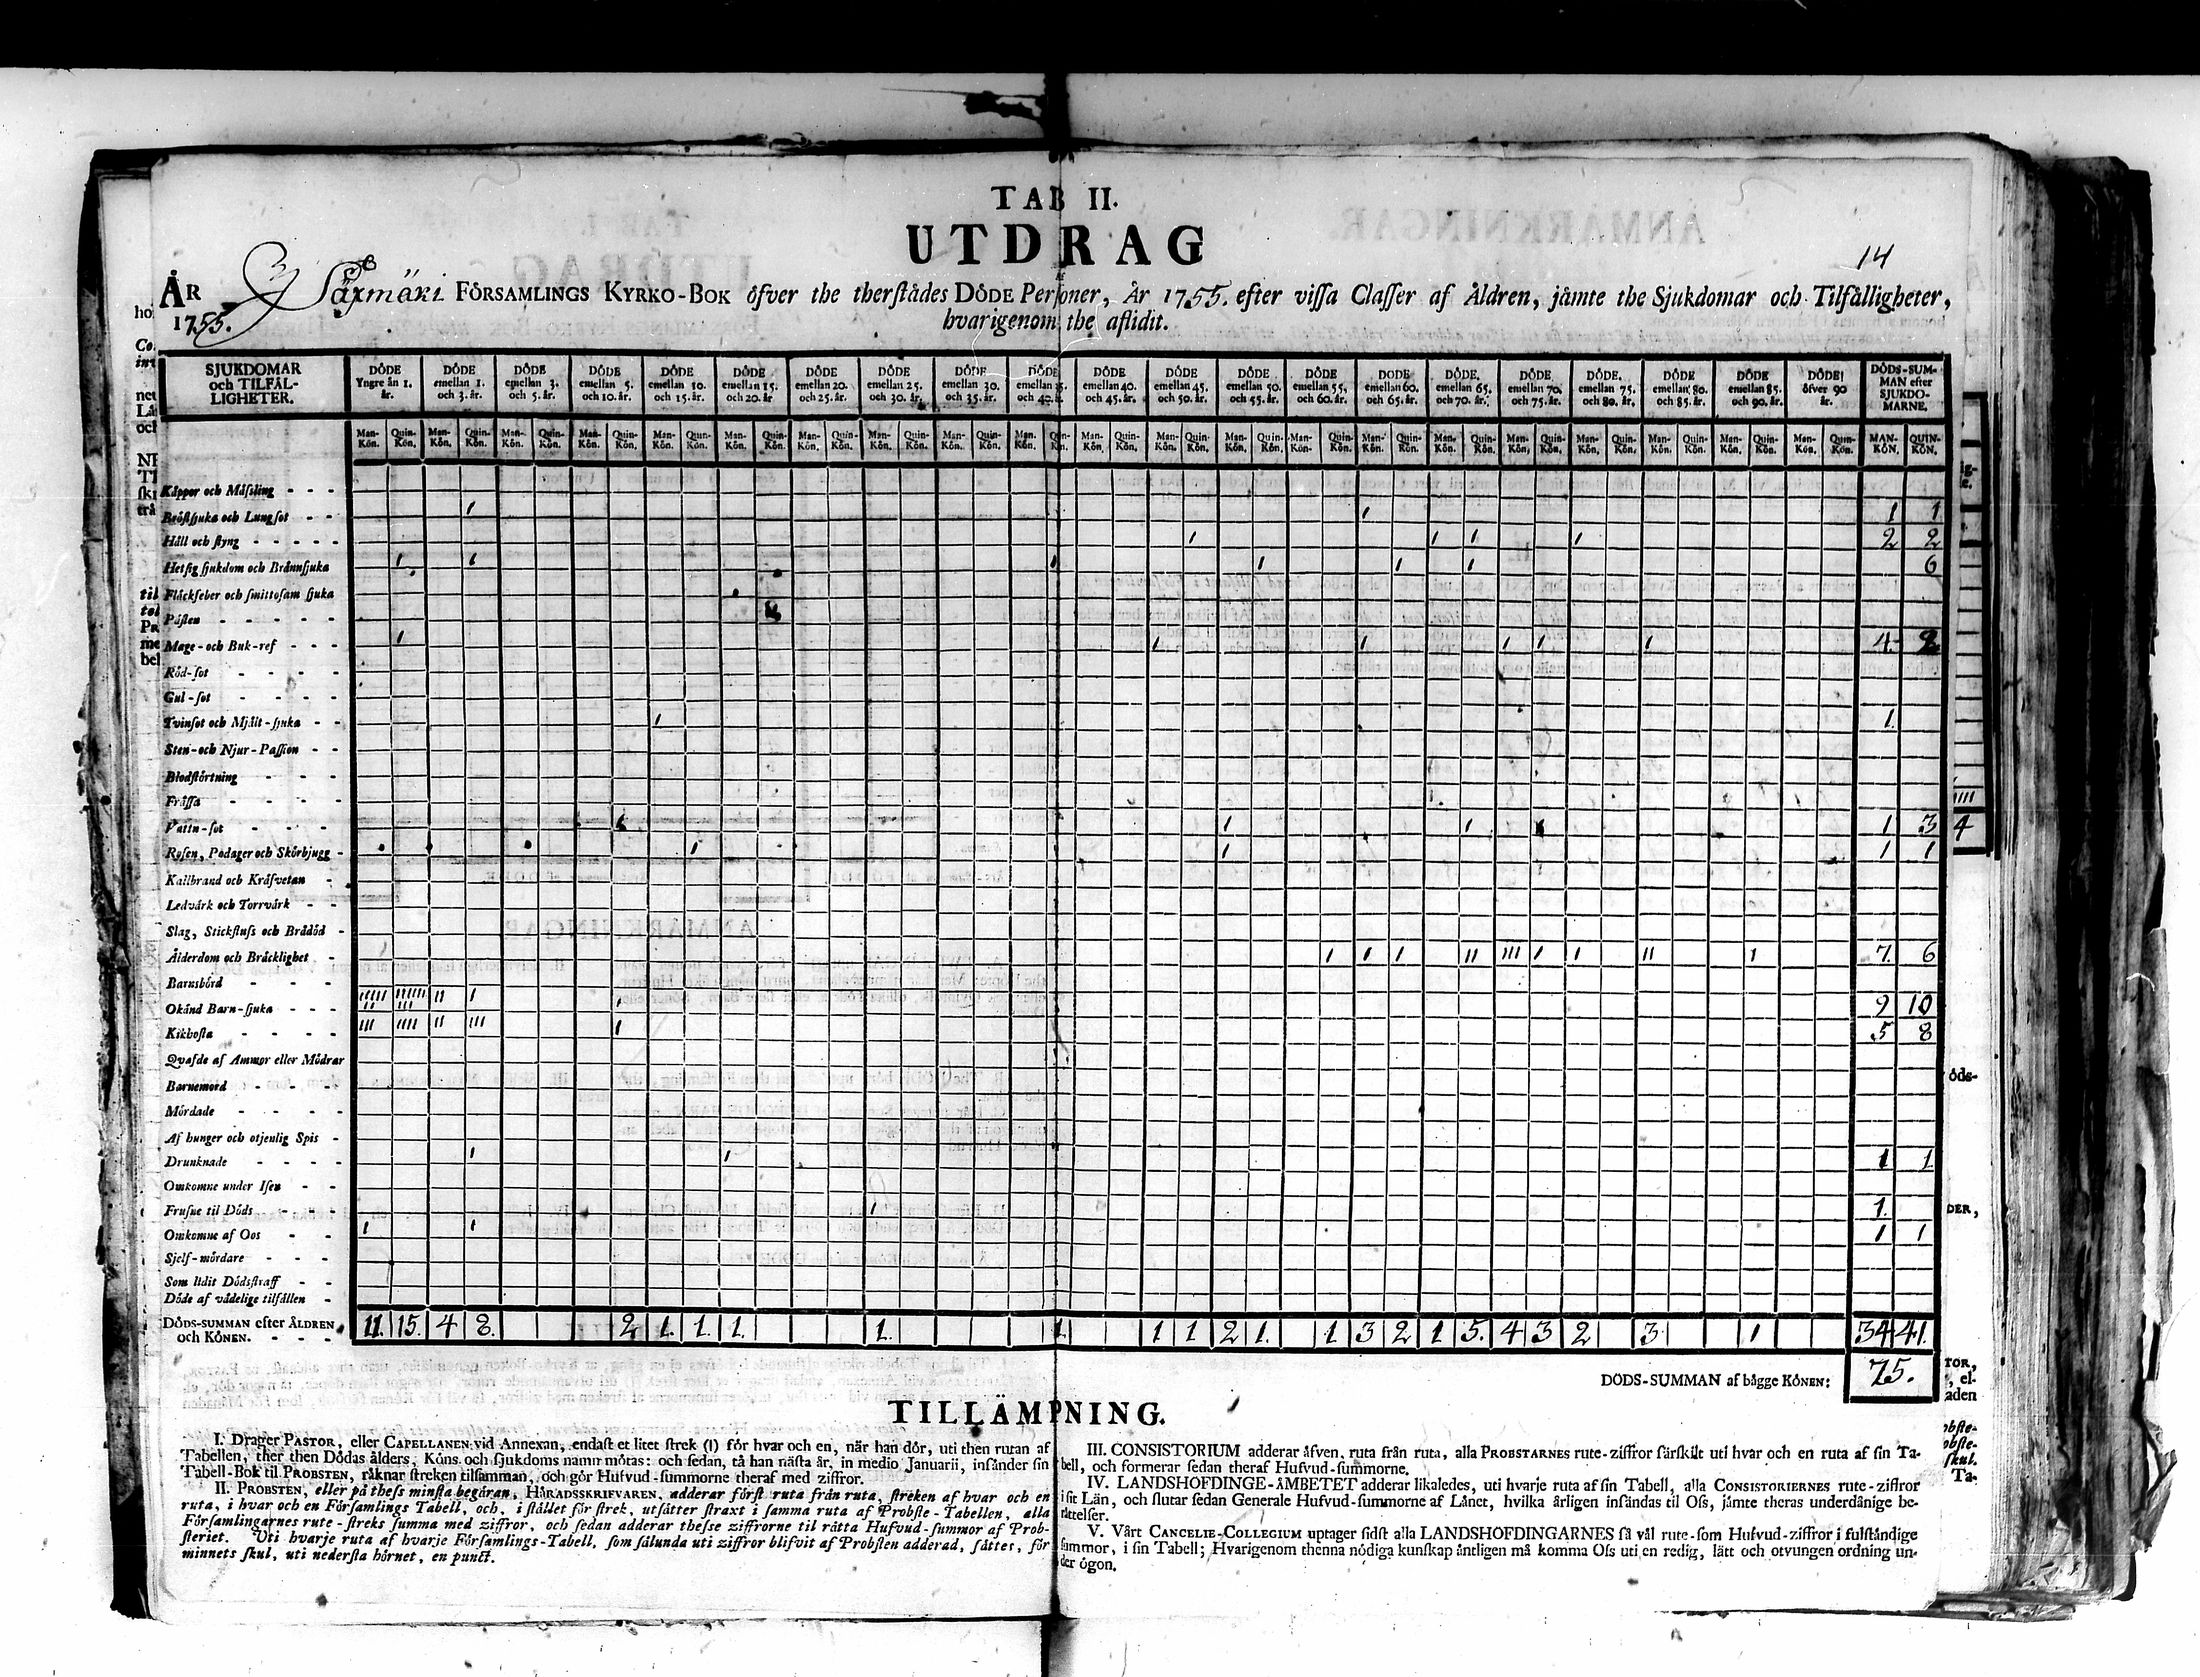 TAB II.
UTDRAG
14
ÅR 1755. Säxmäki FÖRSAMLINGS KYRKO-BOK öfver the therstädes DÖDE Personer, År 1755. efter vissa Classer af Åldren, jämte the Sjukdomar och Tilfälligheter,
hvarigenom the aflidit.
SJUKDOMAR och TILFÄL-LIGHETER. DÖDE Yngre än 1. år. DÖDE emellan 1. och 3. år. DÖDE emellan 3. och 5. år. DÖDE emellan 5. och 10. år. DÖDE emellan 10. och 15. år. DÖDE emellan 15. och 20. år DÖDE emellan 20. och 25. år. DÖDE emellan 25. och 30. år. DÖDE emellan 30. och 35. år. DÖDE emellan 35. och 40. år. DÖDE emellan 40. och 45. år. DÖDE emellan 45. och 50. år. DÖDE emellan 50. och 55. år. DÖDE emellan 55. och 60. år. DÖDE emellan 60. och 65. år. DÖDE emellan 65. och 70. år. DÖDE emellan 70. och 75. år. DÖDE emellan 75. och 80. år. DÖDE emellan 80. och 85. år. DÖDE emellan 85. och 90. år. DÖDE öfver 90 år. DÖDS-SUMMAN efter SJUKDOMARNE.
Man-Kön. Quin-Kön. Man-Kön. Quin-Kön. Man-Kön. Quin-Kön. Man-Kön. Quin-Kön. Man-Kön. Quin-Kön. Man-Kön. Quin-Kön. Man-Kön. Quin-Kön. Man-Kön. Quin-Kön. Man-Kön. Quin-Kön. Man-Kön. Quin-Kön. Man-Kön. Quin-Kön. Man-Kön. Quin-Kön. Man-Kön. Quin-Kön. Man-Kön. Quin-Kön. Man-Kön. Quin-Kön. Man-Kön. Quin-Kön. Man-Kön. Quin-Kön. Man-Kön. Quin-Kön. Man-Kön. Quin-Kön. Man-Kön. Quin-Kön. Man-Kön. Quin-Kön. MAN-KÖN. QUIN-KÖN.
Kåppor och Mässling - - -
Bröstsjuka och Lungsot - - I I 1 1
Håll och styng - - - - - I I I I 2 2
Hetsig sjukdom och Brännsjuka I I I I I I 6
Fläckfeber och smittosam sjuka
Pästen - - - - -
Mage- och Buk-ref - - - I I I I I I 4. 2
Röd-sot - - - -
Gul-sot - - - -
Tvinsot och Mjält-sjuka - - I 1.
Sten- och Njur-Passion - -
Blodstörtning - - -
Frässa - - - -
Vattu-sot - - - I I I I 1 3
Rosen, Podager och Skörbjugg - I I 1 1
Kallbrand och Kräfvetan -
Ledvärk och Torrvärk - -
Slag, Stickfluss och Brådöd -
Ålderdom och Bräcklighet - I I I II III I I II I 7. 6
Barnsbörd - - - -
Okänd Barn-sjuka - - - IIIIIII IIIIIIIII II I 9 10
Kikhosta - - - - III IIII II III I 5 8
Qvafde af Ammor eller Mödrar
Barnemord - - - -
Mördade - - - -
Af hunger och otjenlig Spis -
Drunknade - - - - I I 1 1
Omkomne under Isen - -
Frusne til Döds - - - I 1.
Omkomne af Oos - - I I 1 1
Sjelf-mördare - - -
Som lidit Dödsstraff - -
Döde af vådelige tilfällen -
DÖDS-SUMMAN efter ÅLDREN och KÖNEN. - - - 11. 15. 4 8. 2 1. 1. 1. 1. 1. 1 1 2 1. 1 3 2 1 5. 4 3 2 3 1 34 41.
DÖDS-SUMMAN af bägge KÖNEN: 75.
TILLÄMPNING.
I. Drager PASTOR, eller CAPELLANEN vid Annexan, endast et litet strek (I) för hvar och en, när han dör, uti then rutan af
Tabellen, ther then Dödas ålders, Köns och sjukdoms namn mötas: och sedan, tå han nästa år, in medio Januarii, insänder sin
Tabell-Bok til PROBSTEN, räknar streken tilsamman, och gör Hufvud-summorne theraf med ziffror.
II. PROBSTEN, eller på thess minsta begäran, HÄRADSSKRIFVAREN, adderar först ruta från ruta, streken af hvar och en
ruta, i hvar och en Församlings Tabell, och, i stället för strek, utsätter straxt i samma ruta af Probste-Tabellen, alla
Församlingarnes rute-streks summa med ziffror, och sedan adderar thesse ziffrorne til rätta Hufvud-summor af Prob-
steriet. Uti hvarje ruta af hvarje Församlings-Tabell, som sålunda uti ziffror blifvit af Probsten adderad, sättes, för
minnets skul, uti nedersta hörnet, en punct.
III. CONSISTORIUM adderar äfven, ruta från ruta, alla PROBSTARNES rute-ziffror särskilt uti hvar och en ruta af sin Ta-
bell, och formerar sedan theraf Hufvud-summorne.
IV. LANDSHÖFDINGE-ÄMBETET adderar likaledes, uti hvarje ruta af sin Tabell, alla CONSISTORIERNES rute-ziffror
i sit Län, och slutar sedan Generale Hufvud-summorne af Länet, hvilka årligen insändas til Oss, jämte theras underdånige be-
rättelser.
V. Vårt CANCELIE-COLLEGIUM uptager sidst alla LANDSHÖFDINGARNES så väl rute-som Hufvud-ziffror i fulständige
summor, i sin Tabell; Hvarigenom thenna nödiga kunskap äntligen må komma Oss uti en redig, lätt och otvungen ordning un-
der ögon.